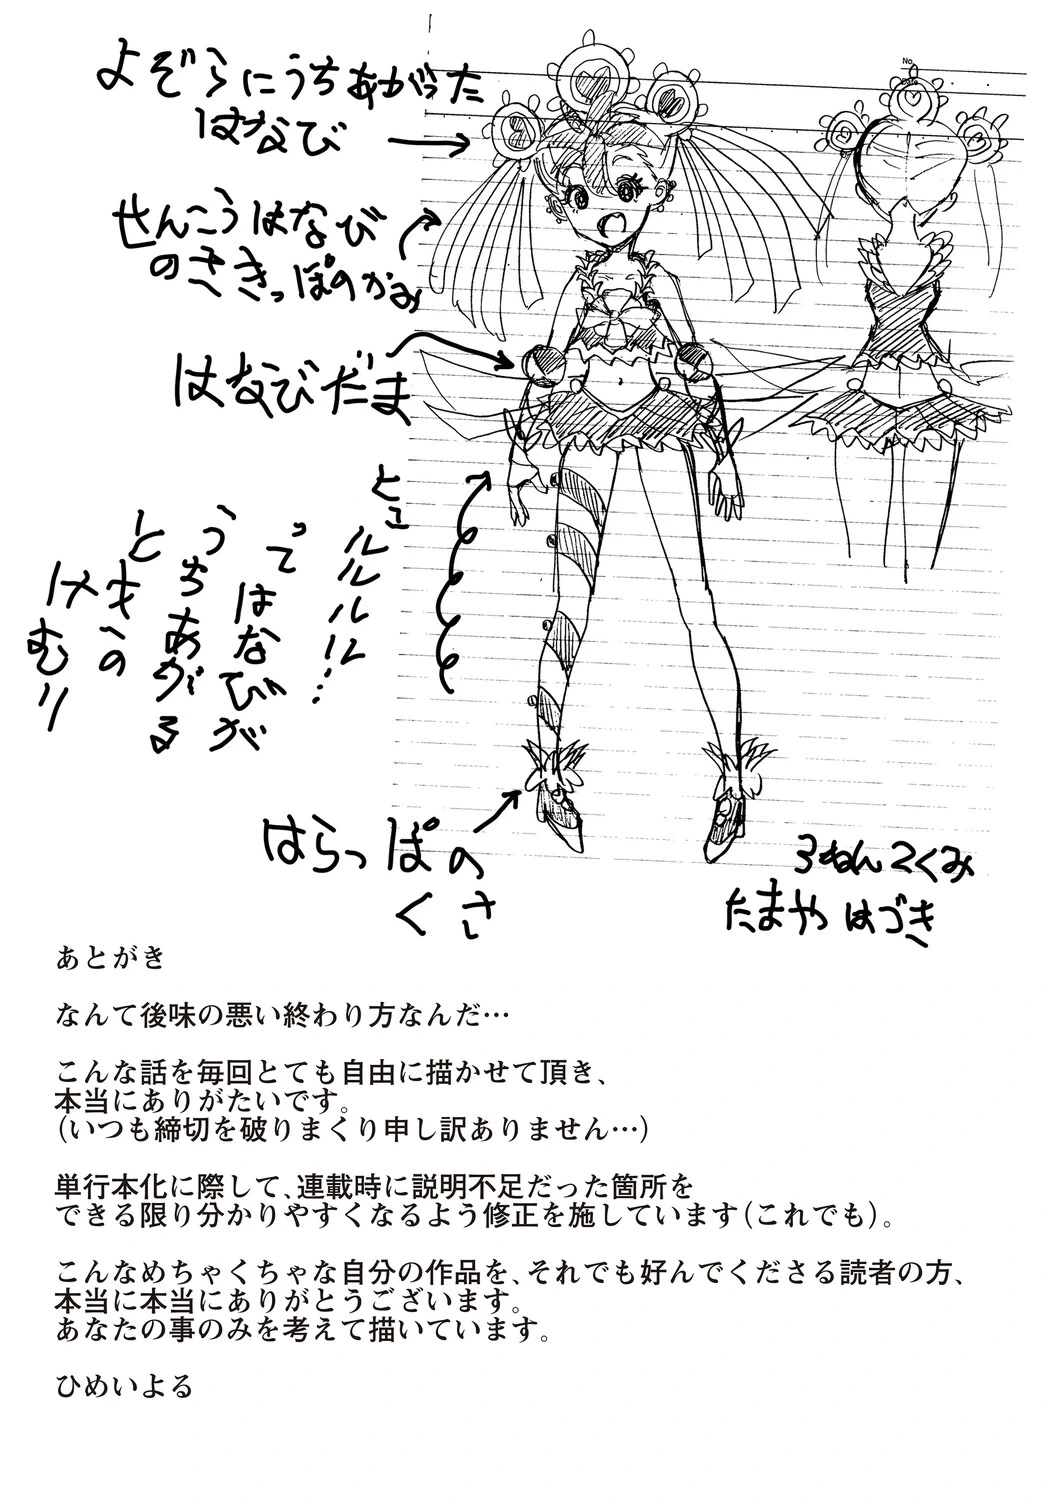 No.
Date
よぞらにうちあがった
はなび
せんこうはなび
のさきっぽのかみ
はなびだま
ルルルル!…
って
はなびが
うちあがる
ときの
けむり
はらっぱの
くさ
3ねん2くみ
たまや はづき
あとがき
なんて後味の悪い終わり方なんだ…
こんな話を毎回とても自由に描かせて頂き、
本当にありがたいです。
(いつも締切を破りまくり申し訳ありません…)
単行本化に際して、連載時に説明不足だった箇所を
できる限り分かりやすくなるよう修正を施しています(これでも)。
こんなめちゃくちゃな自分の作品を、それでも好んでくださる読者の方、
本当に本当にありがとうございます。
あなたの事のみを考えて描いています。
ひめいよる